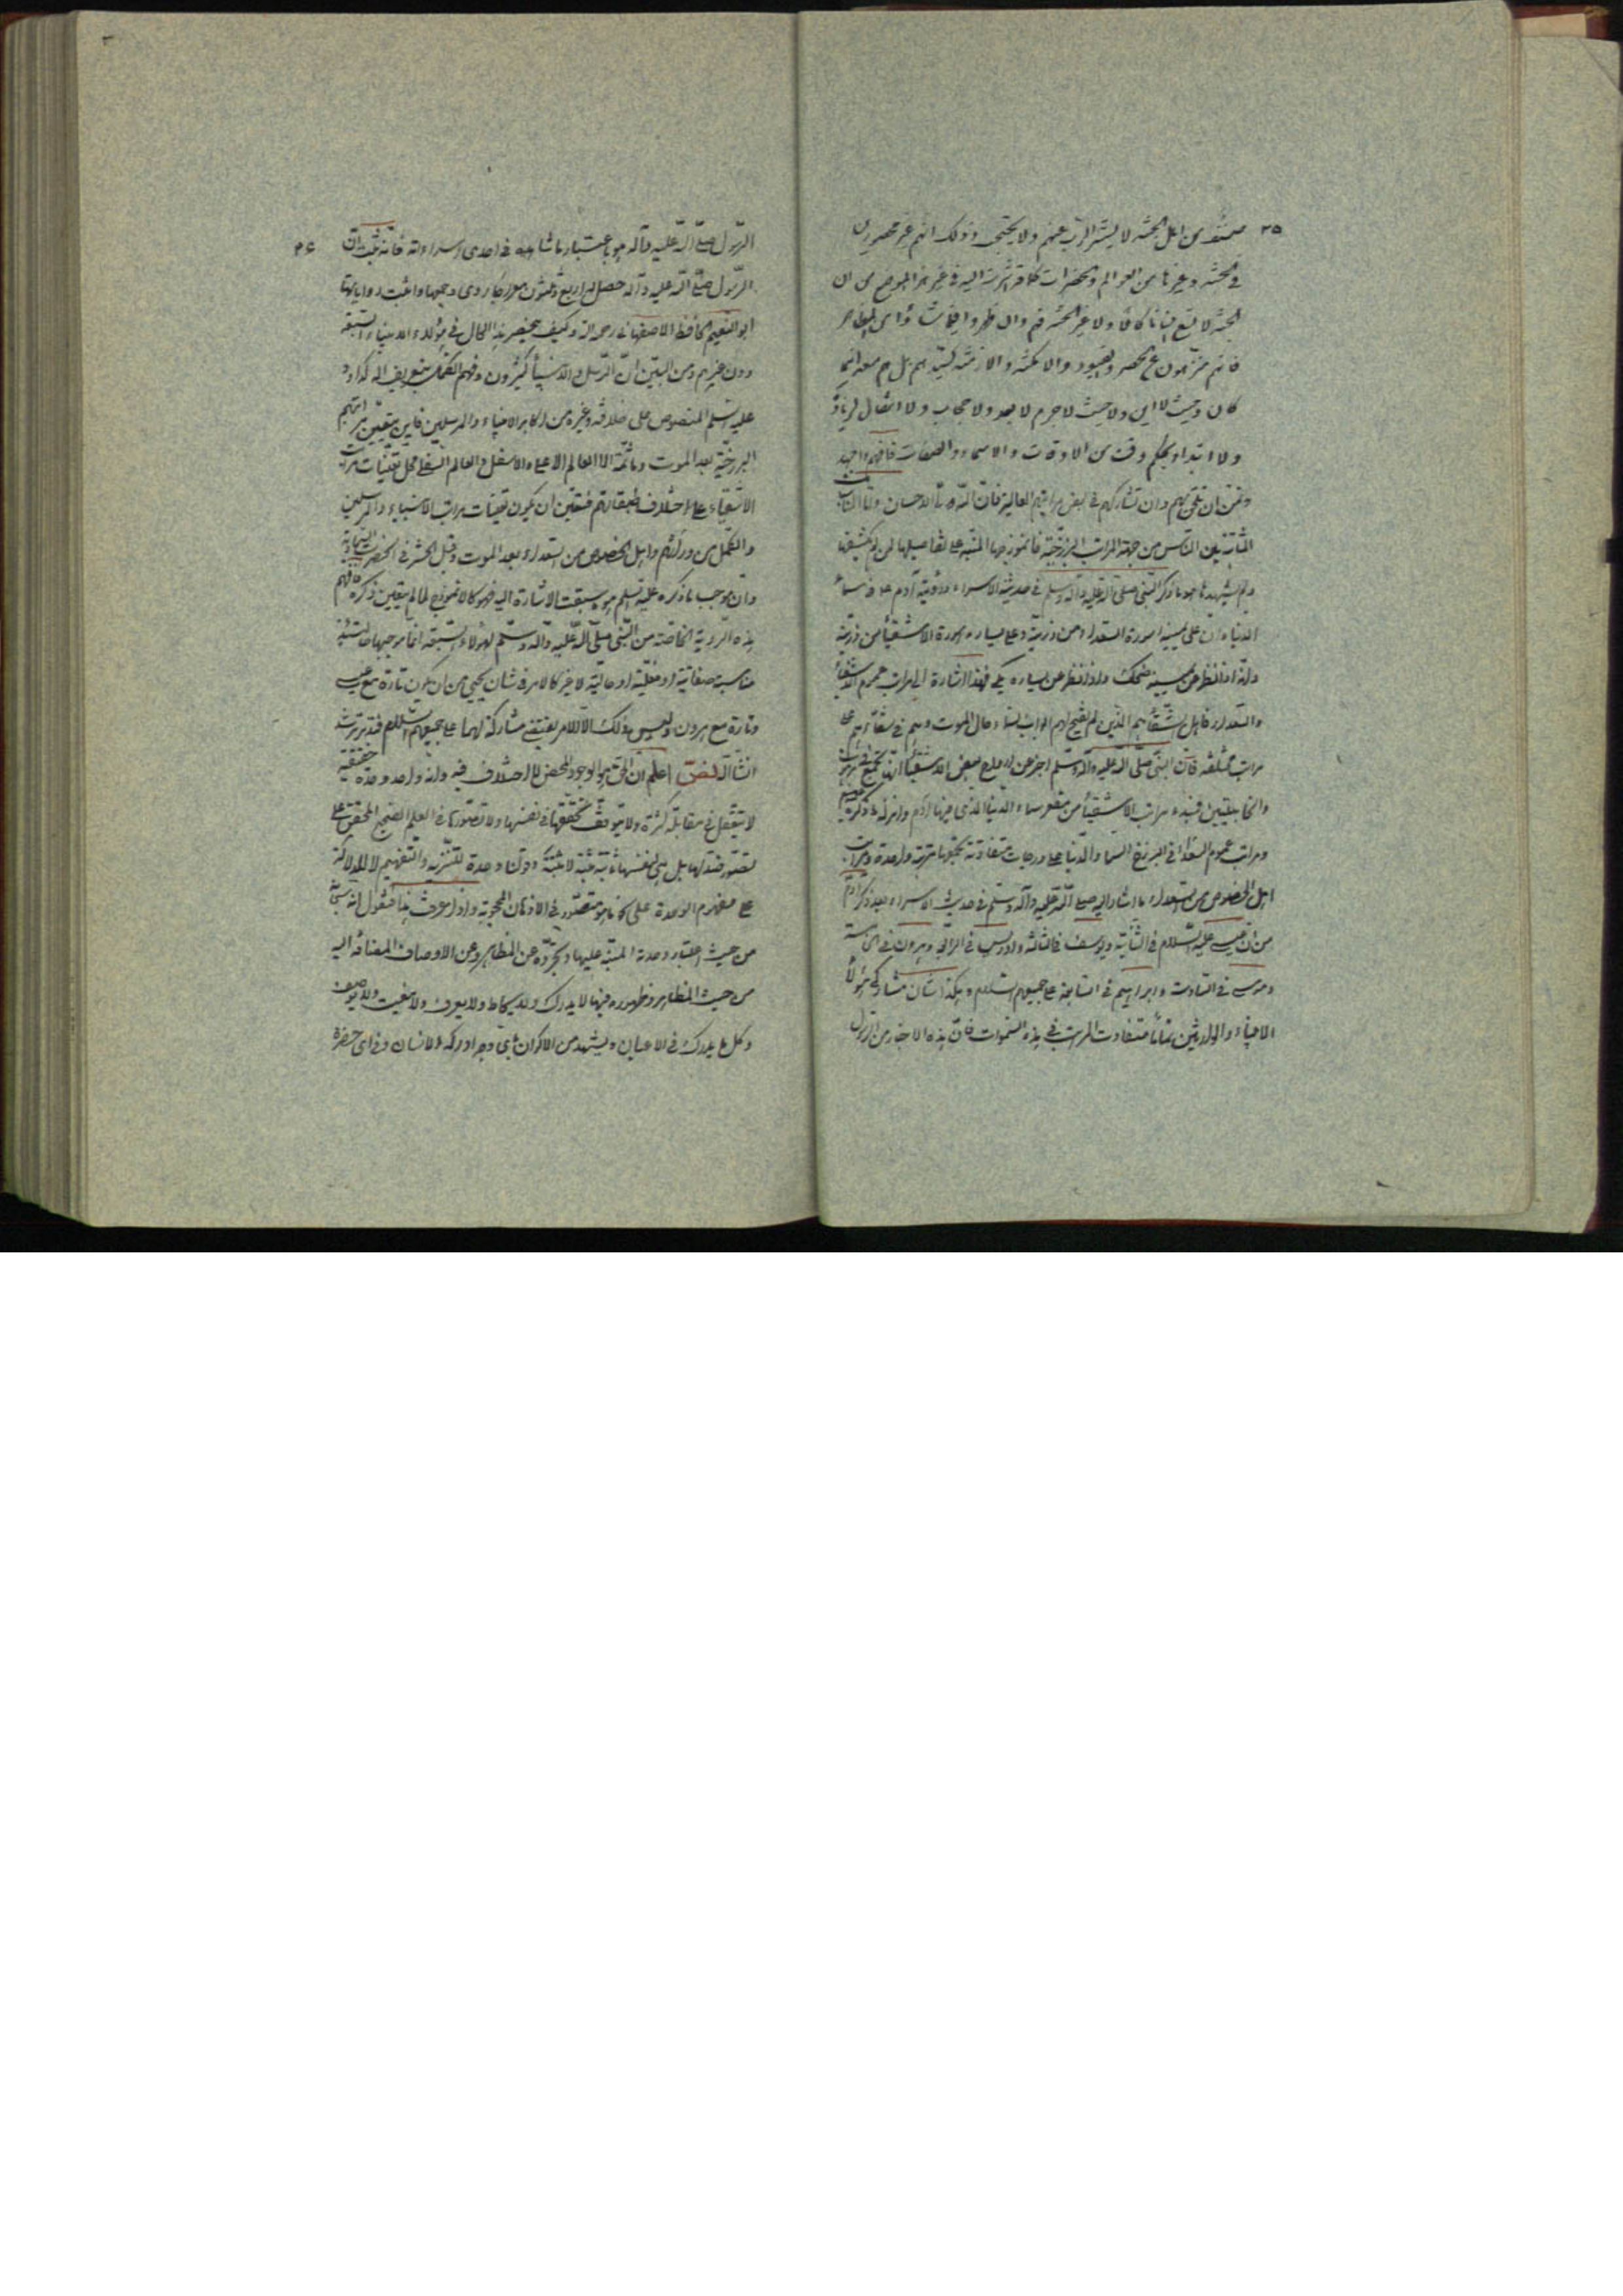 ٣٥ صنف من اهل الجنة لا يستتر الرب عنهم ولا يحتجب وذلك انهم غير محصورين
في الجنة وغيرها من العوالم والحضرات كما قد اشرت اليه في غير هذا الموضع من ان
الجنة لا تسع انسانا كاملا ولا غير الجنة فهم وان ظهروا فيما شاؤا من المظاهر
فانهم منزهون عن الحصر والقيود والامكنة والازمنة كسيدهم بل هم معه اينما
كان وحيث لا اين ولا حيث لا جرم لا بعد ولا حجاب ولا انتقال لزيارة
ولا ابتداء بحكم وقت من الاوقات والاسماء والصفات فافهم واجتهد
وتمن ان تلحق بهم وان تشاركهم في بعض مراتبهم العالية فان الله ولي الاحسان واما
الثابتة بين الناس من جهة المراتب البرزخية فانموذجها المنبه على تفاصيلها لمن لم يكشفها
ولم يشهدها هو ما ذكر النبي صلى الله عليه وآله وسلم في حديث الاسراء ورؤيته آدم في سماء
الدنيا وان على يمينه اسودة السعداء من ذريته وعلى يساره اسودة الاشقياء من ذريته
وانه اذا نظر عن يمينه ضحك واذا نظر عن يساره بكى فهذا اشارة الى مراتب عموم الاشقياء
والسعداء فاهل الشقاء هم الذين لم تفتح لهم ابواب السماء حال الموت وهم في شقائهم على
مراتب مختلفة فان النبي صلى الله عليه وآله وسلم اخبر عن ارواح بعض الاشقياء انها تجتمع في برهوت
والخابطين فمبدء مراتب الاشقياء من مقعر سماء الدنيا الذي فيها آدم وانزله ما ذكر
ومراتب عموم السعداء في البرزخ السماء الدنيا على درجات متفاوتة يحويها مرتبة واحدة ومراتب
اهل الخصوص من السعداء ما اشار اليه صلى الله عليه وآله وسلم في حديث الاسراء بعد ذكر آدم
من ان عيسى عليه السلام في الثانية ويوسف في الثالثة وادريس في الرابعة وهرون في الخامسة
وموسى في السادسة وابراهيم في السابعة على جميعهم السلام وهكذا شان مشاركي هؤلاء
الانبياء والوارثين تماما متفاوت المراتب في هذه السموات فان هذه الاخبار من الرسول
الرسول صلى الله عليه وآله هو باعتبار ما شاهده في احدى اسراءاته فانه ثبت ان ٣٦
الرسول صلى الله عليه وآله حصل له اربع وثلثون معراجا روى جميعها واثبت رواياتها
ابو النعيم الحافظ الاصفهاني رحمه الله وكيف ينحصر هذا الحال في هؤلاء الانبياء السبعة
دون غيرهم ومن البين ان الرسل والانبياء كثيرون وفيهم الكمل بتعريف الله كداود
عليه السلم المنصوص على خلافته وغيره من اكابر الانبياء والمرسلين فاين يتعين مراتبهم
البرزخية بعد الموت وما ثمة الا العالم الاعلى والاسفل والعالم السفلي محل تعينات مراتب
الاشقياء على اختلاف طبقاتهم فتعين ان يكون تعينات مراتب الانبياء والمرسلين
والكمل من ورثتهم واهل الخصوص من السعداء بعد الموت وقبل الحشر في الحضرات السماوية
وان موجب ما ذكره عليه السلم هو ما سبقت الاشارة اليه فهو كالانموذج لما لم يتعين ذكره فافهم
هذه الرؤية الخاصة من النبي صلى الله عليه وآله وسلم لهؤلاء السبعة انما موجبها حالتئذ
مناسبة صفاتية او فعلية او حالية لا غير كالامر في شان يحيى من ان يكون تارة مع عيسى
وتارة مع هرون وليس ذلك الا لامر يقتضي مشاركة لهما على جميعهم السلام فتدبر ترشد
انشاء الله نص اعلم ان الحق هو الوجود المحض لا اختلاف فيه وانه واحد وحدة حقيقية
لا يتعقل في مقابلة كثرة ولا يتوقف تحققها في نفسها ولا تصورها في العلم الصحيح المحقق على
تصور ضد لها بل هي لنفسها ثابتة مثبتة لا مثبتة وقولنا وحدة للتنزيه والتفهيم لا للدلالة
على مفهوم الوحدة على ما هو متصور في الاذهان المحجوبة واذا عرفت هذا فنقول انه سبحانه
من حيث اعتبار وحدته المنبه عليها وتجرده عن المظاهر وعن الاوصاف المضافة اليه
من حيث المظاهر وظهوره فيها لا يدرك ولا يحاط ولا يعرف ولا ينعت ولا يوصف
وكل ما يدرك في الاعيان ويشهد من الاكوان باي وجه ادركه الانسان وفي اي حضرة